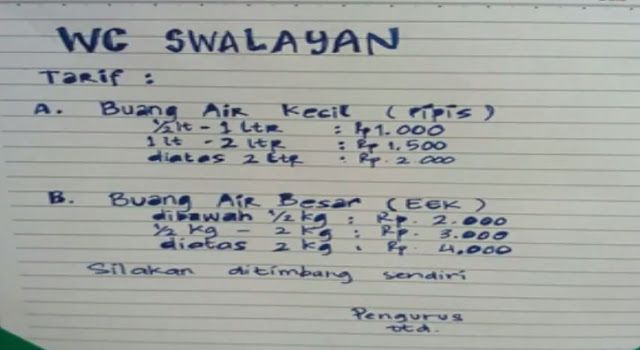 WC SWALAYAN
Tarif :
A. Buang Air Kecil (Pipis)
½lt - 1 Ltr : Rp 1.000
1 lt - 2 Ltr : Rp 1,500
diatas 2 Ltr : Rp. 2.000
B. Buang Air Besar (EEK)
dibawah ½ kg : Rp. 2.000
½ kg - 2 kg : Rp. 3.000
diatas 2 kg : Rp. 4.000
Silakan ditimbang sendiri
Pengurus
ttd.